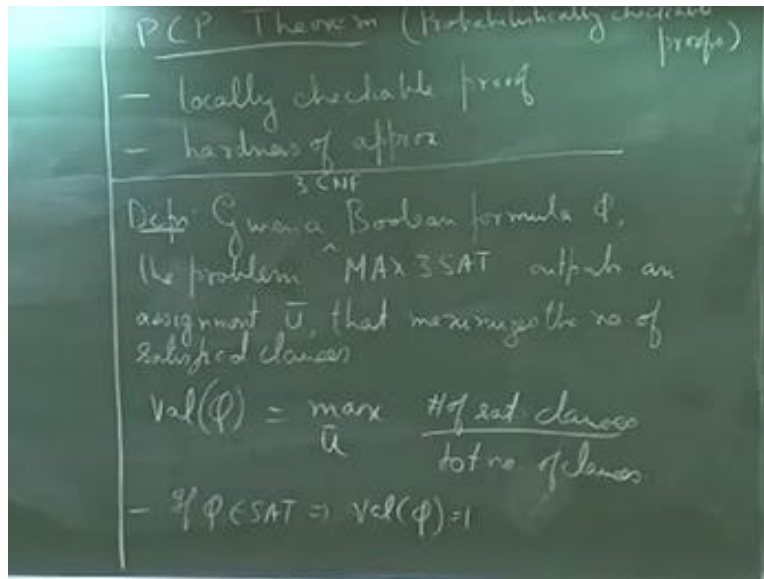 PCP Theorem (Probabilistically checkable
proofs)
- locally checkable proof
- hardness of approx
3CNF
Defn: Given a ^ Boolean formula φ,
the problem MAX 3SAT outputs an
assignment ū, that maximizes the no of
satisfied clauses
Val(φ) = max # of sat. clauses
ū tot no. of clauses
- If φ ∈ SAT ⇒ val(φ)=1